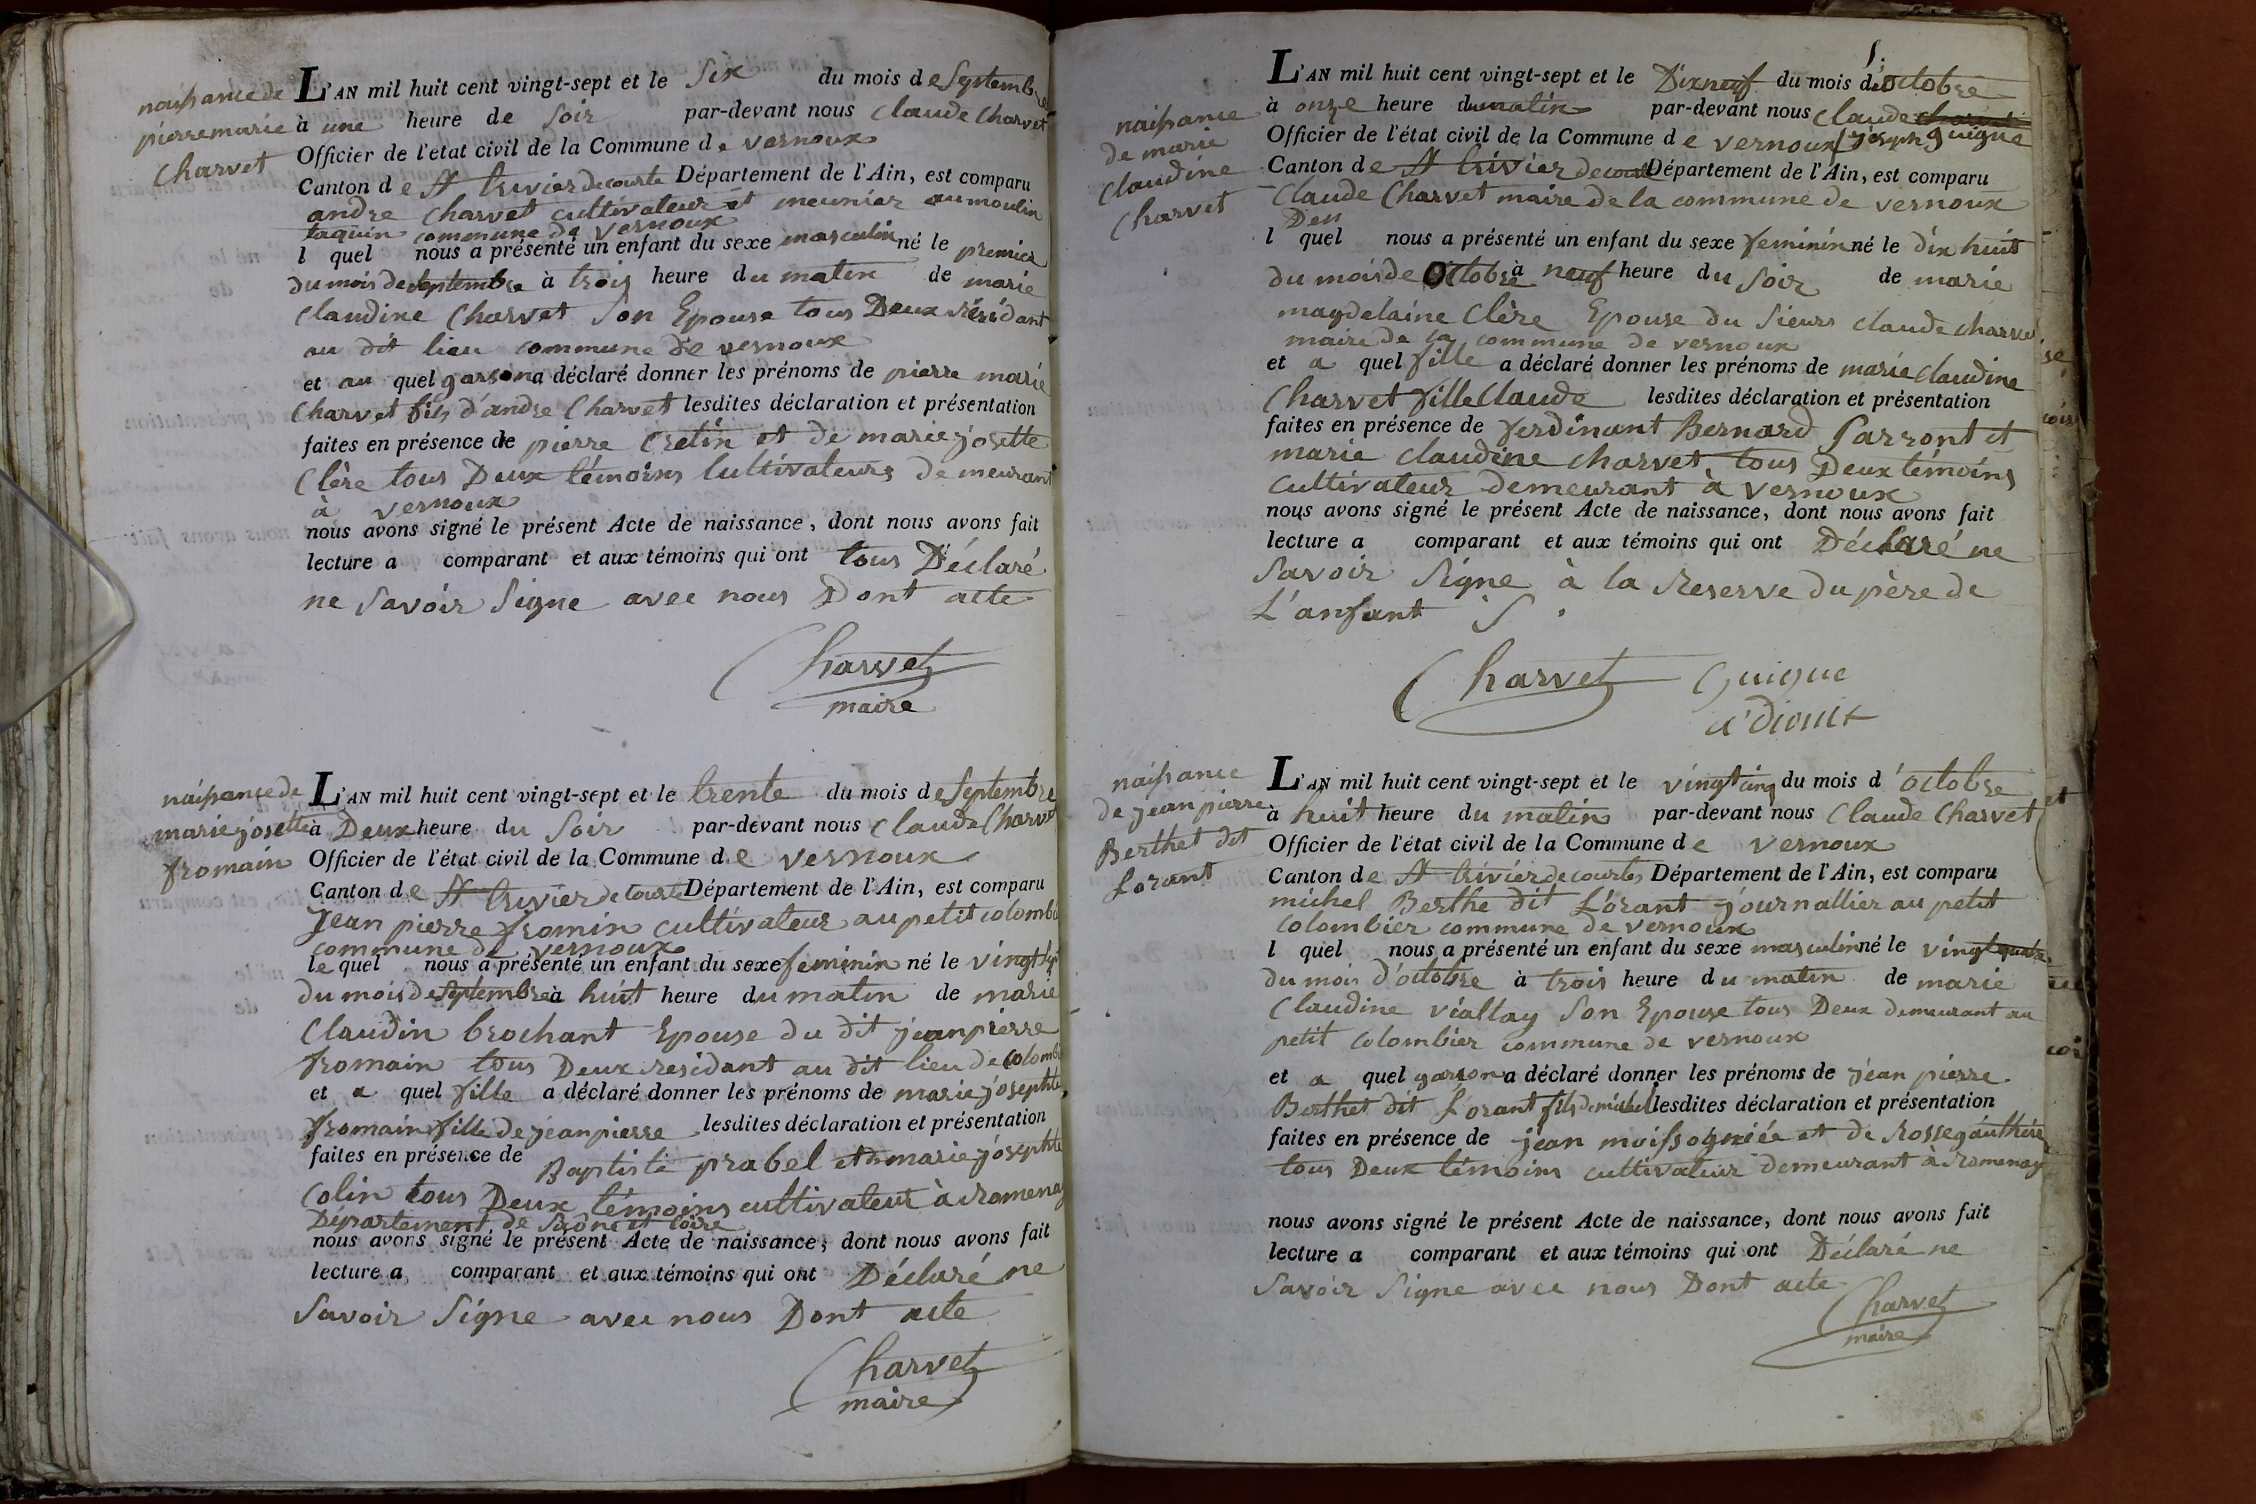 naissance de
pierre marie
Charvet
L'AN mil huit cent vingt-sept et le Six du mois de Septembre
à une heure de Soir par-devant nous Claude Charvet
Officier de l'état civil de la Commune de vernoux
Canton de St trivier de courte Département de l'Ain, est comparu
andre Charvet cultivateur et meunier au moulin
taquin commune de vernoux
l quel nous a présenté un enfant du sexe masculin né le premier
du mois de Septembre à trois heure du matin de marie
Claudine Charvet Son Epouse tous Deux résidant
au dit lieu commune de vernoux
et au quel garson a déclaré donner les prénoms de pierre marie
Charvet fils d'andre Charvet lesdites déclaration et présentation
faites en présence de pierre Cretin et de marie josette
Clère tous Deux témoins Cultivateurs Demeurant
à vernoux
nous avons signé le présent Acte de naissance, dont nous avons fait
lecture a comparant et aux témoins qui ont tous Déclaré
ne Savoir Signe avec nous Dont acte
Charvet
maire
naissance de
marie josette
fromain
L'AN mil huit cent vingt-sept et le trente du mois de Septembre
à Deux heure du Soir par-devant nous Claude Charvet
Officier de l'état civil de la Commune de vernoux
Canton de St trivier de courte Département de l'Ain, est comparu
Jean pierre fromin cultivateur au petit colombi
commune de vernoux
le quel nous a présenté un enfant du sexe feminin né le vingt
du mois de Septembre à huit heure du matin de marie
Claudin brochant Epouse du dit jean pierre
fromain tous Deux residant au dit lieu de colombi
et a quel fille a déclaré donner les prénoms de marie josephte
fromain fille de jean pierre lesdites déclaration et présentation
faites en présence de Baptiste prabel et de marie josephte
Colin tous Deux témoins cultivateur à romenay
Département de Saône et Loire
nous avons signé le présent Acte de naissance, dont nous avons fait
lecture a comparant et aux témoins qui ont Déclaré ne
Savoir Signe avec nous Dont acte
Charvet
maire
naissance
de marie
Claudine
Charvet
L'AN mil huit cent vingt-sept et le Dixneuf du mois d'octobre
à onze heure du matin par-devant nous Claude Charvet
joseph guigue
Officier de l'état civil de la Commune de vernoux
Canton de St trivier de courte Département de l'Ain, est comparu
Claude Charvet maire de la commune de vernoux
l quel nous a présenté un enfant du sexe feminin né le dix huit
du mois de Octobre à neuf heure du Soir de marie
magdelaine Clère Epouse du Sieurs Claude Charvet
maire de la commune de vernoux
et a quel fille a déclaré donner les prénoms de marie Claudine
Charvet fille Claude lesdites déclaration et présentation
faites en présence de ferdinant Bernard Parront et
marie Claudine Charvet tous Deux témoins
Cultivateur Demeurant à vernoux
nous avons signé le présent Acte de naissance, dont nous avons fait
lecture a comparant et aux témoins qui ont Déclaré ne
Savoir Signe à la Reserve du père de
L'anfant
Charvet Guigue
a'dioint
naissance
de jean pierre
Berthet dit
Lorant
L'AN mil huit cent vingt-sept et le vingt cinq du mois d'octobre
à huit heure du matin par-devant nous Claude Charvet
Officier de l'état civil de la Commune de vernoux
Canton de St trivier de courtes Département de l'Ain, est comparu
michel Berthe dit L'orant journallier au petit
Colombier commune de vernoux
l quel nous a présenté un enfant du sexe masculin né le vingt quatre
du mois d'octobre à trois heure du matin de marie
Claudine viallay Son Epouse tous Deux Demeurant au
petit Colombier commune de vernoux
et a quel garson a déclaré donner les prénoms de jean pierre
Berthet dit Lorant fils de michel lesdites déclaration et présentation
faites en présence de jean et de Rosse gauthier
tous Deux témoins cultivateur Demeurant à romenay
nous avons signé le présent Acte de naissance, dont nous avons fait
lecture a comparant et aux témoins qui ont Déclaré ne
Savoir Signe avec nous Dont acte
Charvet
maire